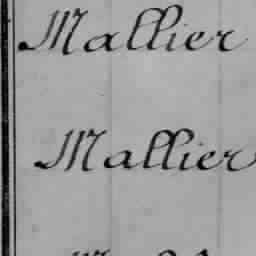 Mallier
Mallier